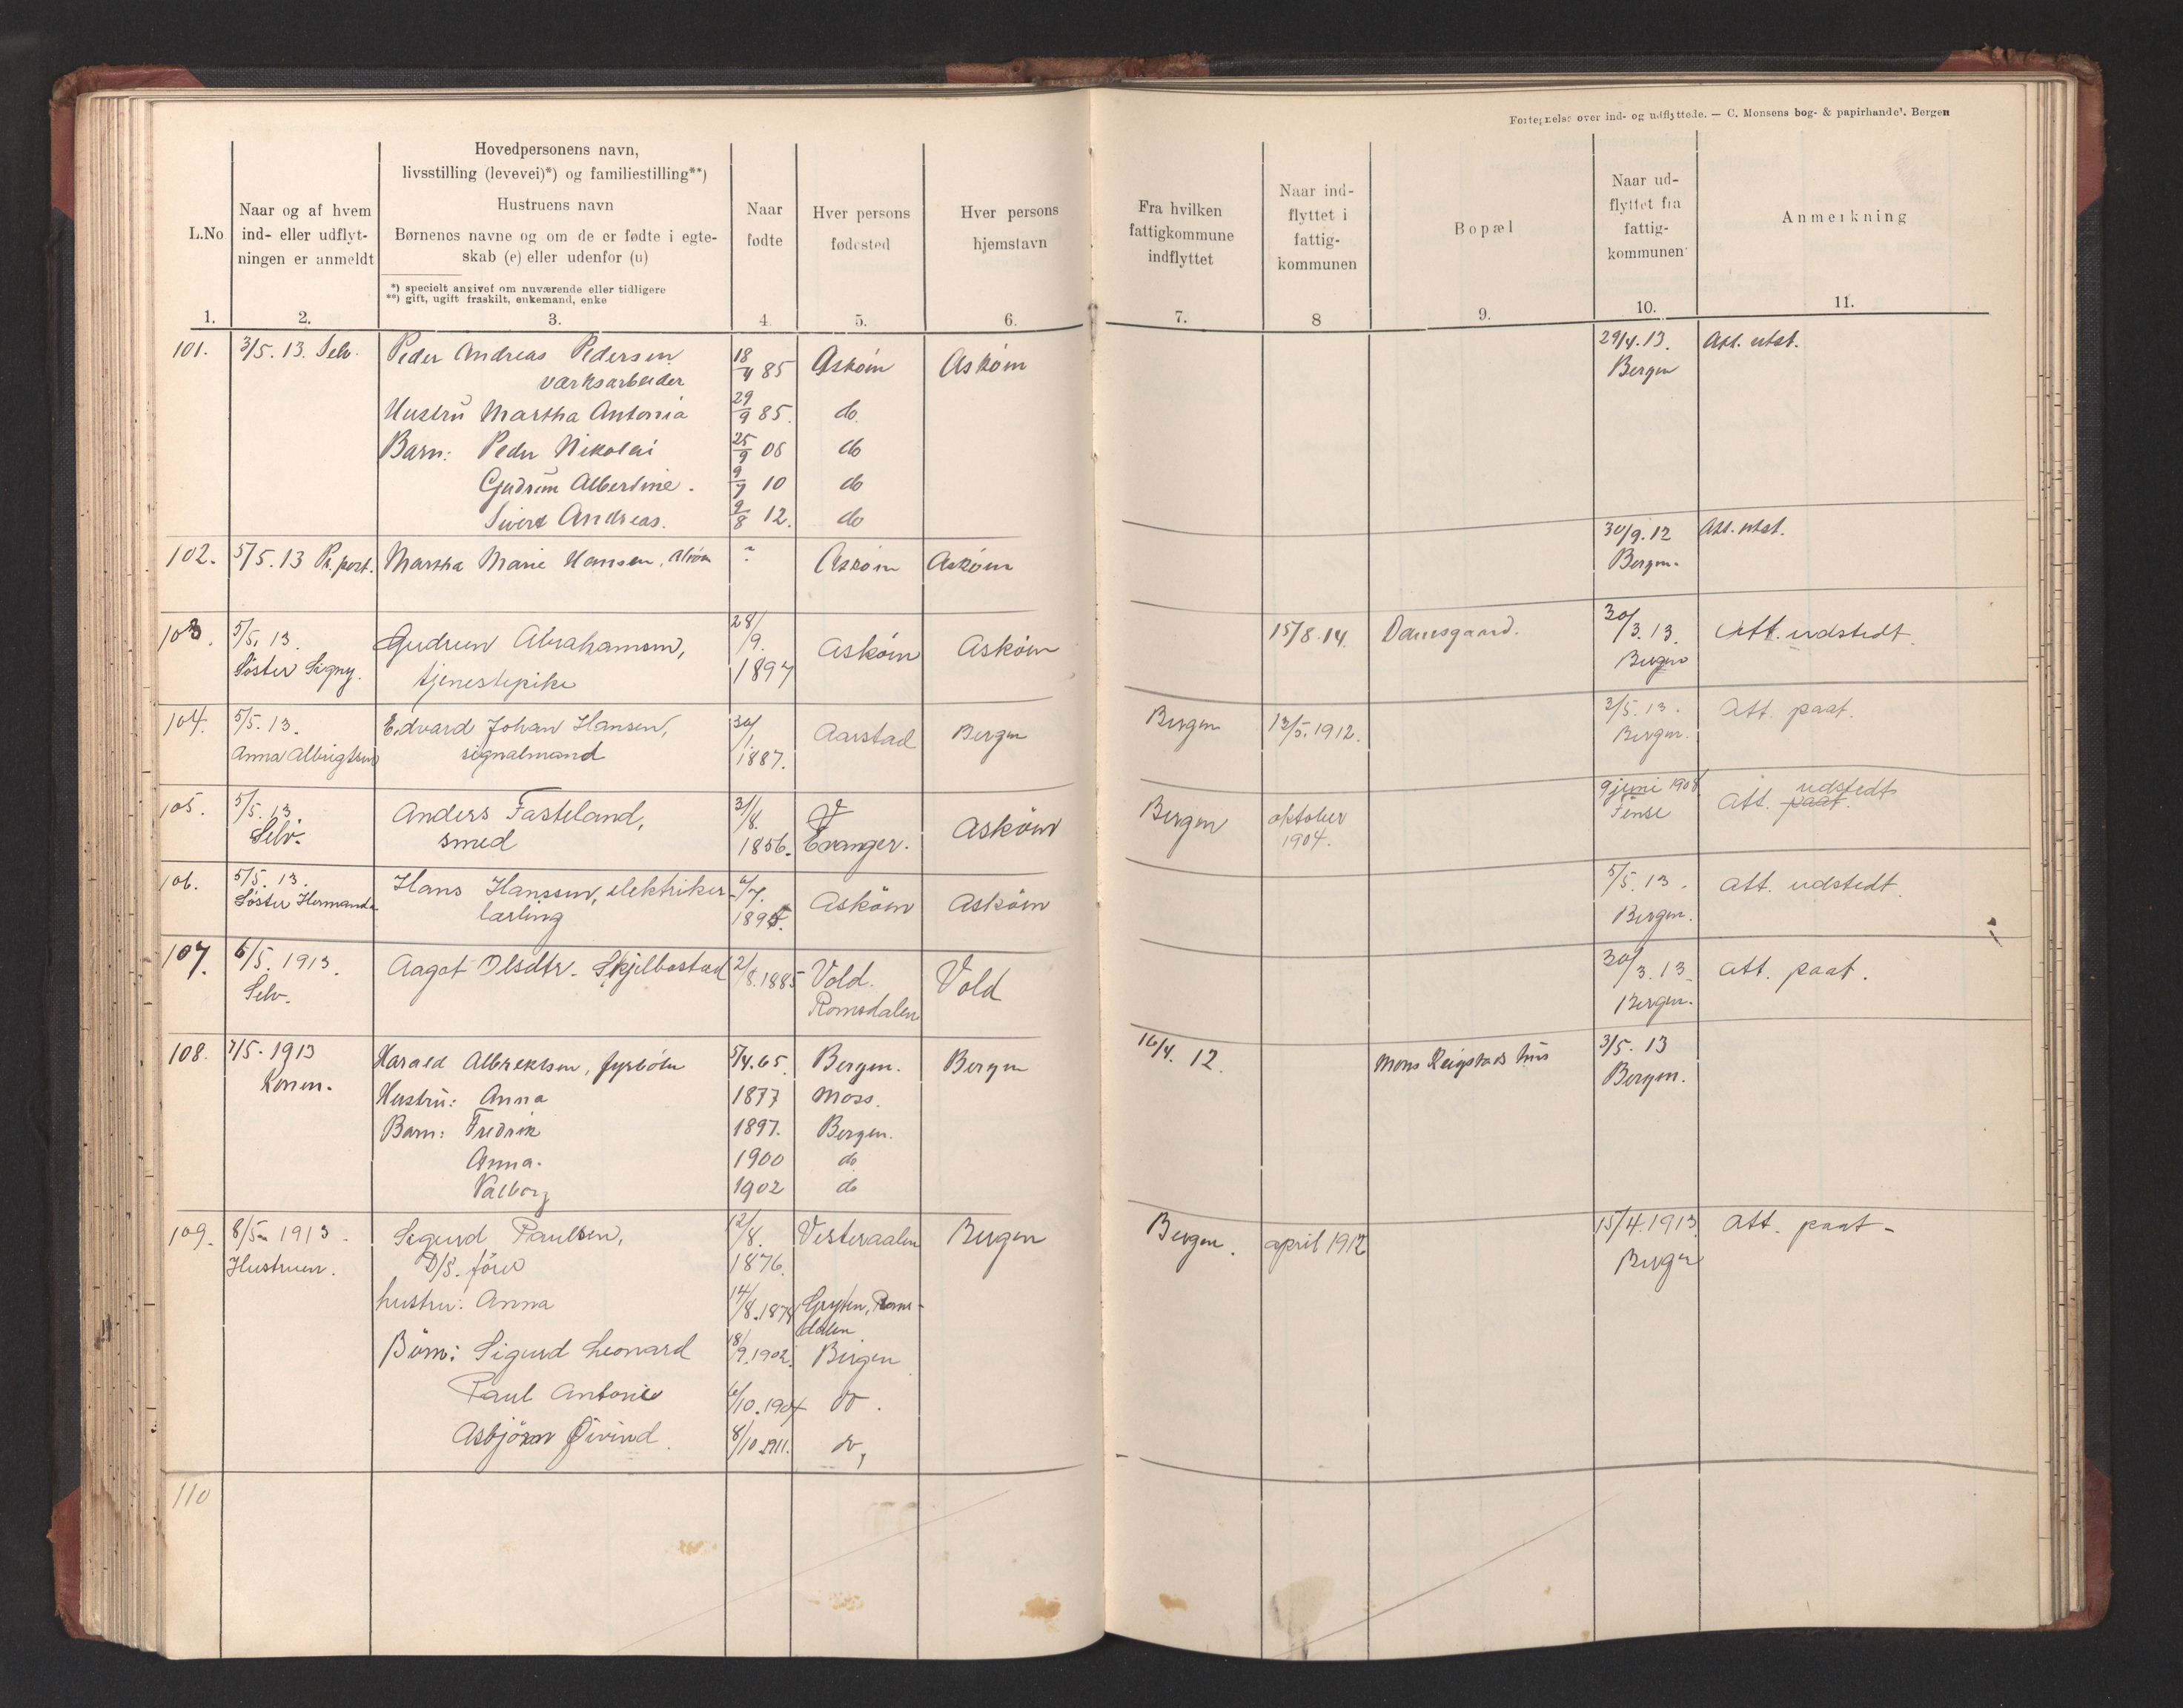 Fortegnelse over ind- og udflyttede. — C. Monsens bog- & papirhandel. Bergen
L.No
Naar og af hvem
ind- eller udflyt-
ningen er anmeldt
Hovedpersonens navn,
livsstilling (levevei)*) og familiestilling**)
Hustruens navn
Børnenes navne og om de er fødte i egte-
skab (e) eller udenfor (u)
*) specielt angivet om nuværende eller tidligere
**) gift, ugift fraskilt, enkemand, enke
Naar
fødte
Hver persons
fødested
Hver persons
hjemstavn
Fra hvilken
fattigkommune
indflyttet
Naar ind-
flyttet i
fattig-
kommunen
Bopæl
Naar ud-
flyttet fra
fattig-
kommunen
Anmerkning
1. 2. 3. 4. 5. 6. 7. 8 9. 10. 11.
101. 3/5. 13. Selv. Peder Andreas Pedersen 18/4 85 Askøin Askøin 29/4. 13. Att. utst.
værksarbeider Bergen
Hustru Martha Antonia 29/9 85. do.
Barn: Peder Nikolai 25/9 06 do
Gudrun Albertine. 9/7 10 do
Sivert Andreas. 2/8 12. do
102. 5/5. 13 Pr. post. Martha Marie Hansen, ? Askøin Askøin 30/9. 12 Att. utst.
Bergen.
103. 5/5. 13. Gudrun Abrahamsen, 28/9. 1897 Askøin Askøin 15/8. 14. Damsgaard. 30/3. 13. Att. udstedt.
Søster Signy. tjenestepike Bergen
104. 5/5. 13. Edvard Johan Hansen, 30/1. 1887. Aarstad Bergen Bergen 13/5. 1912. 3/5. 13. Att. paat.
Anna Albrigtsen signalmand Bergen.
105. 5/5. 13. Anders Fasteland, 31/8. 1856. Evanger. Askøin Bergen oktober 1904. 9 juni 1908 Att. paat. udstedt
Selv. smed Finse
106. 5/5. 13. Hans Hanssen, elektriker- 6/7. 1895. Askøin Askøin 5/5. 13. Att. udstedt.
Søster Hermanda lærling Bergen.
107. 6/5. 1913. Aagot Olsdtr. Skjelbostad 2/8. 1885 Vold. Vold 30/3. 13 Att. paat.
Selv. Romsdalen Bergen.
108. 7/5. 1913 Harald Albrektsen, fyrbøter 5/4. 65. Bergen. Bergen 16/4. 12. Mons Reigstads hus 3/5. 13
Konen. Bergen.
Hustru: Anna 1877 Moss.
Barn: Fredrik 1897. Bergen.
Anna. 1900 do
Valborg 1902 do
109. 8/5. 1913. Sigurd Paulsen, 12/8. 1876. Vesteraalen Bergen Bergen. april 1912 15/4. 1913 Att. paat.
Hustruen. D/S. fører Bergen
hustru: Anna 14/8. 1878 Gryten, Roms-
dalen
Børn: Sigurd Leonard 18/9. 1902. Bergen
Paul Antonie 6/10. 1904 do.
Asbjørn Øivind. 8/10 1911. do,
110